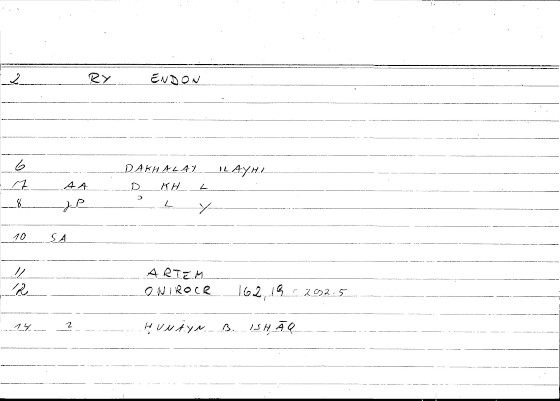 2 RY ENDON
6 DAKHALAT ILAYHI
7 AA D KH L
8 JP ʾ L Y
10 SA
11 ARTEM
12 ONIROCR 162,19 = 202.5
14 2 ḤUNAYN B. ISḤĀQ